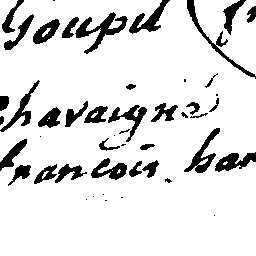 Goupil
Chavaigné
francois